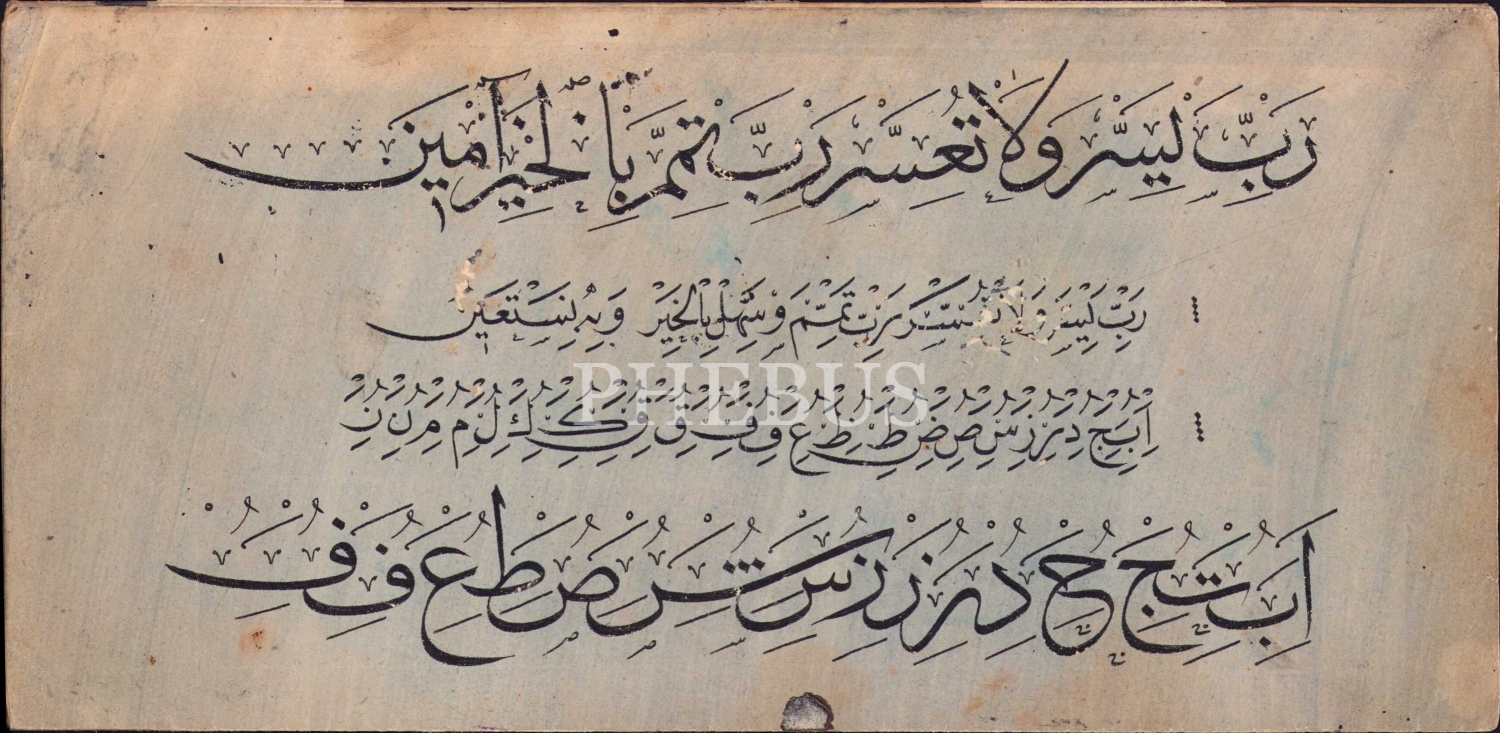 رَبِّ يَسِّرْ وَلَا تُعَسِّرْ رَبِّ تَمِّمْ بِالْخَيْرِ آمِينَ
رَبِّ يَسِّرْ وَلَا تُعَسِّرْ رَبِّ تَمِّمْ وَسَهِّلْ بِالْخَيْرِ وَبِهِ نَسْتَعِينُ
PHEBUS
ا ب ج د ر ز س ص ض ط ظ ع و ف ق ك ك ل م م ن ن
ا ب ت ج ح د ر ز ز س ش ص ط ع ف ف